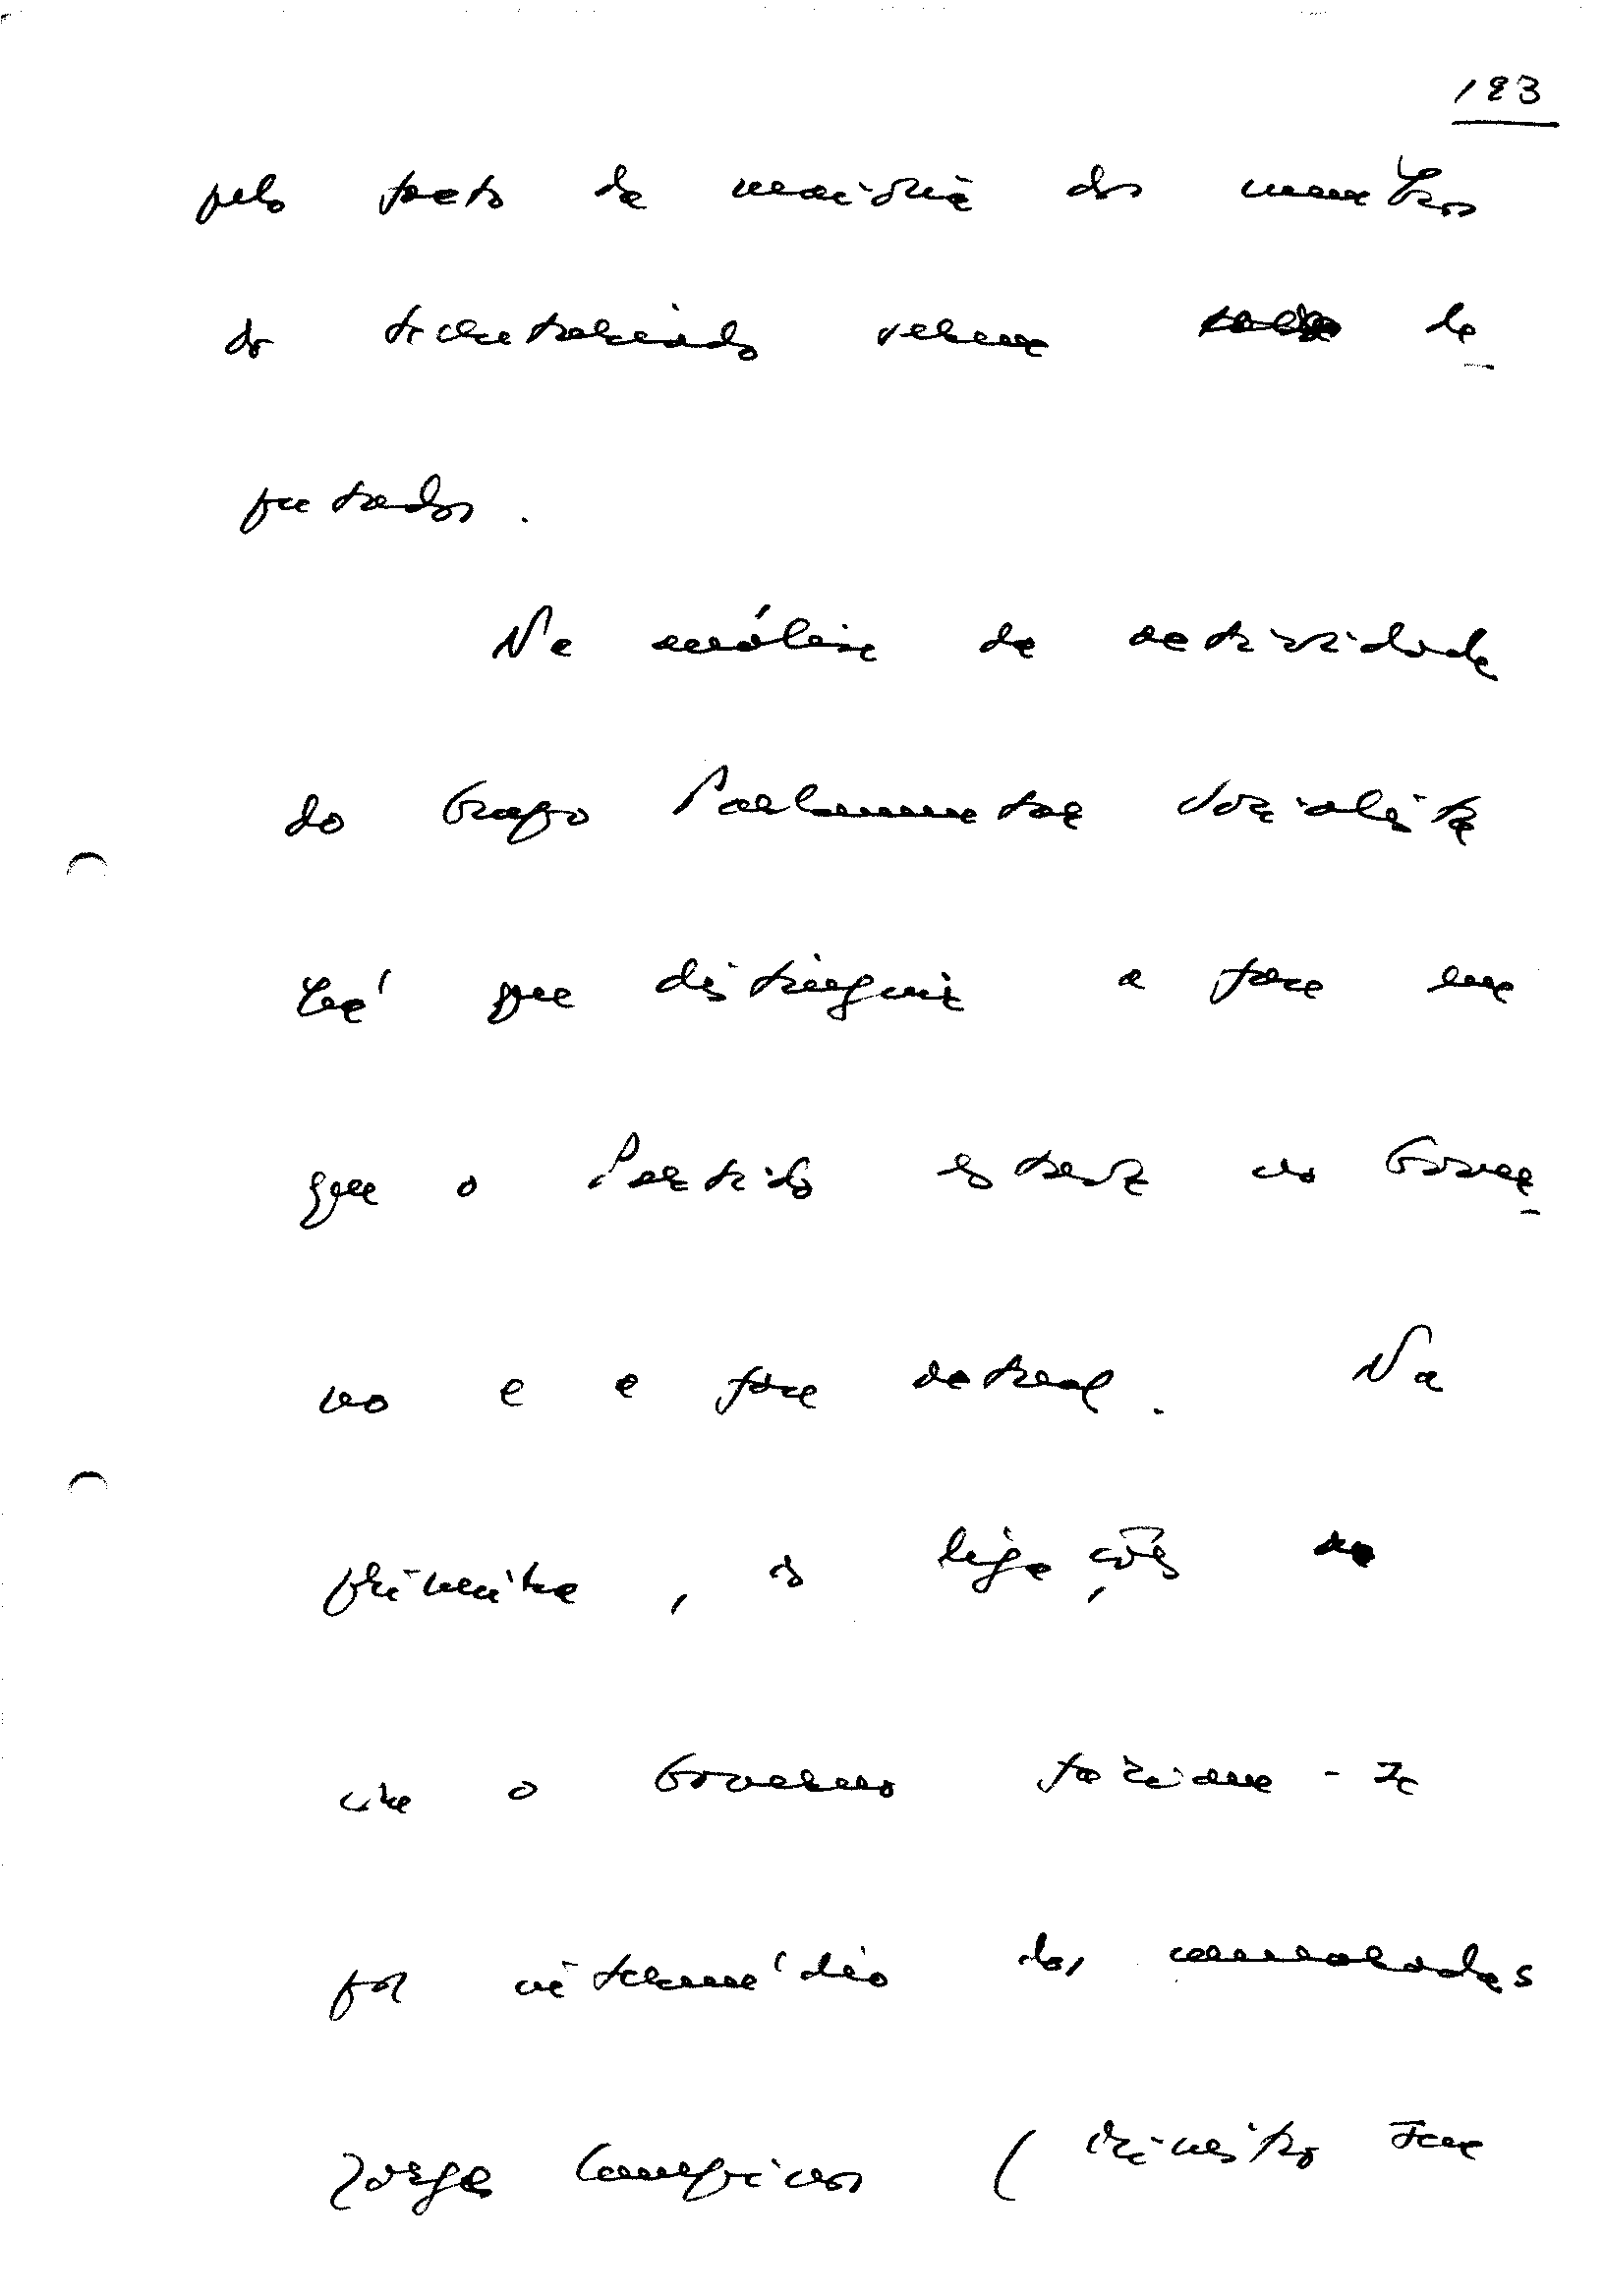 183
pelo facto da maioria dos membros
do Secretariado serem de
putados.
Na análise da actividade
do Grupo Parlamentar Socialista
há que distinguir a fase em
que o Partido esteve no Gover
no e a fase actual. Na
primeira, as ligações
com o Governo faziam-se
por intermédio dos camaradas
Jorge Campinos (Ministro sem